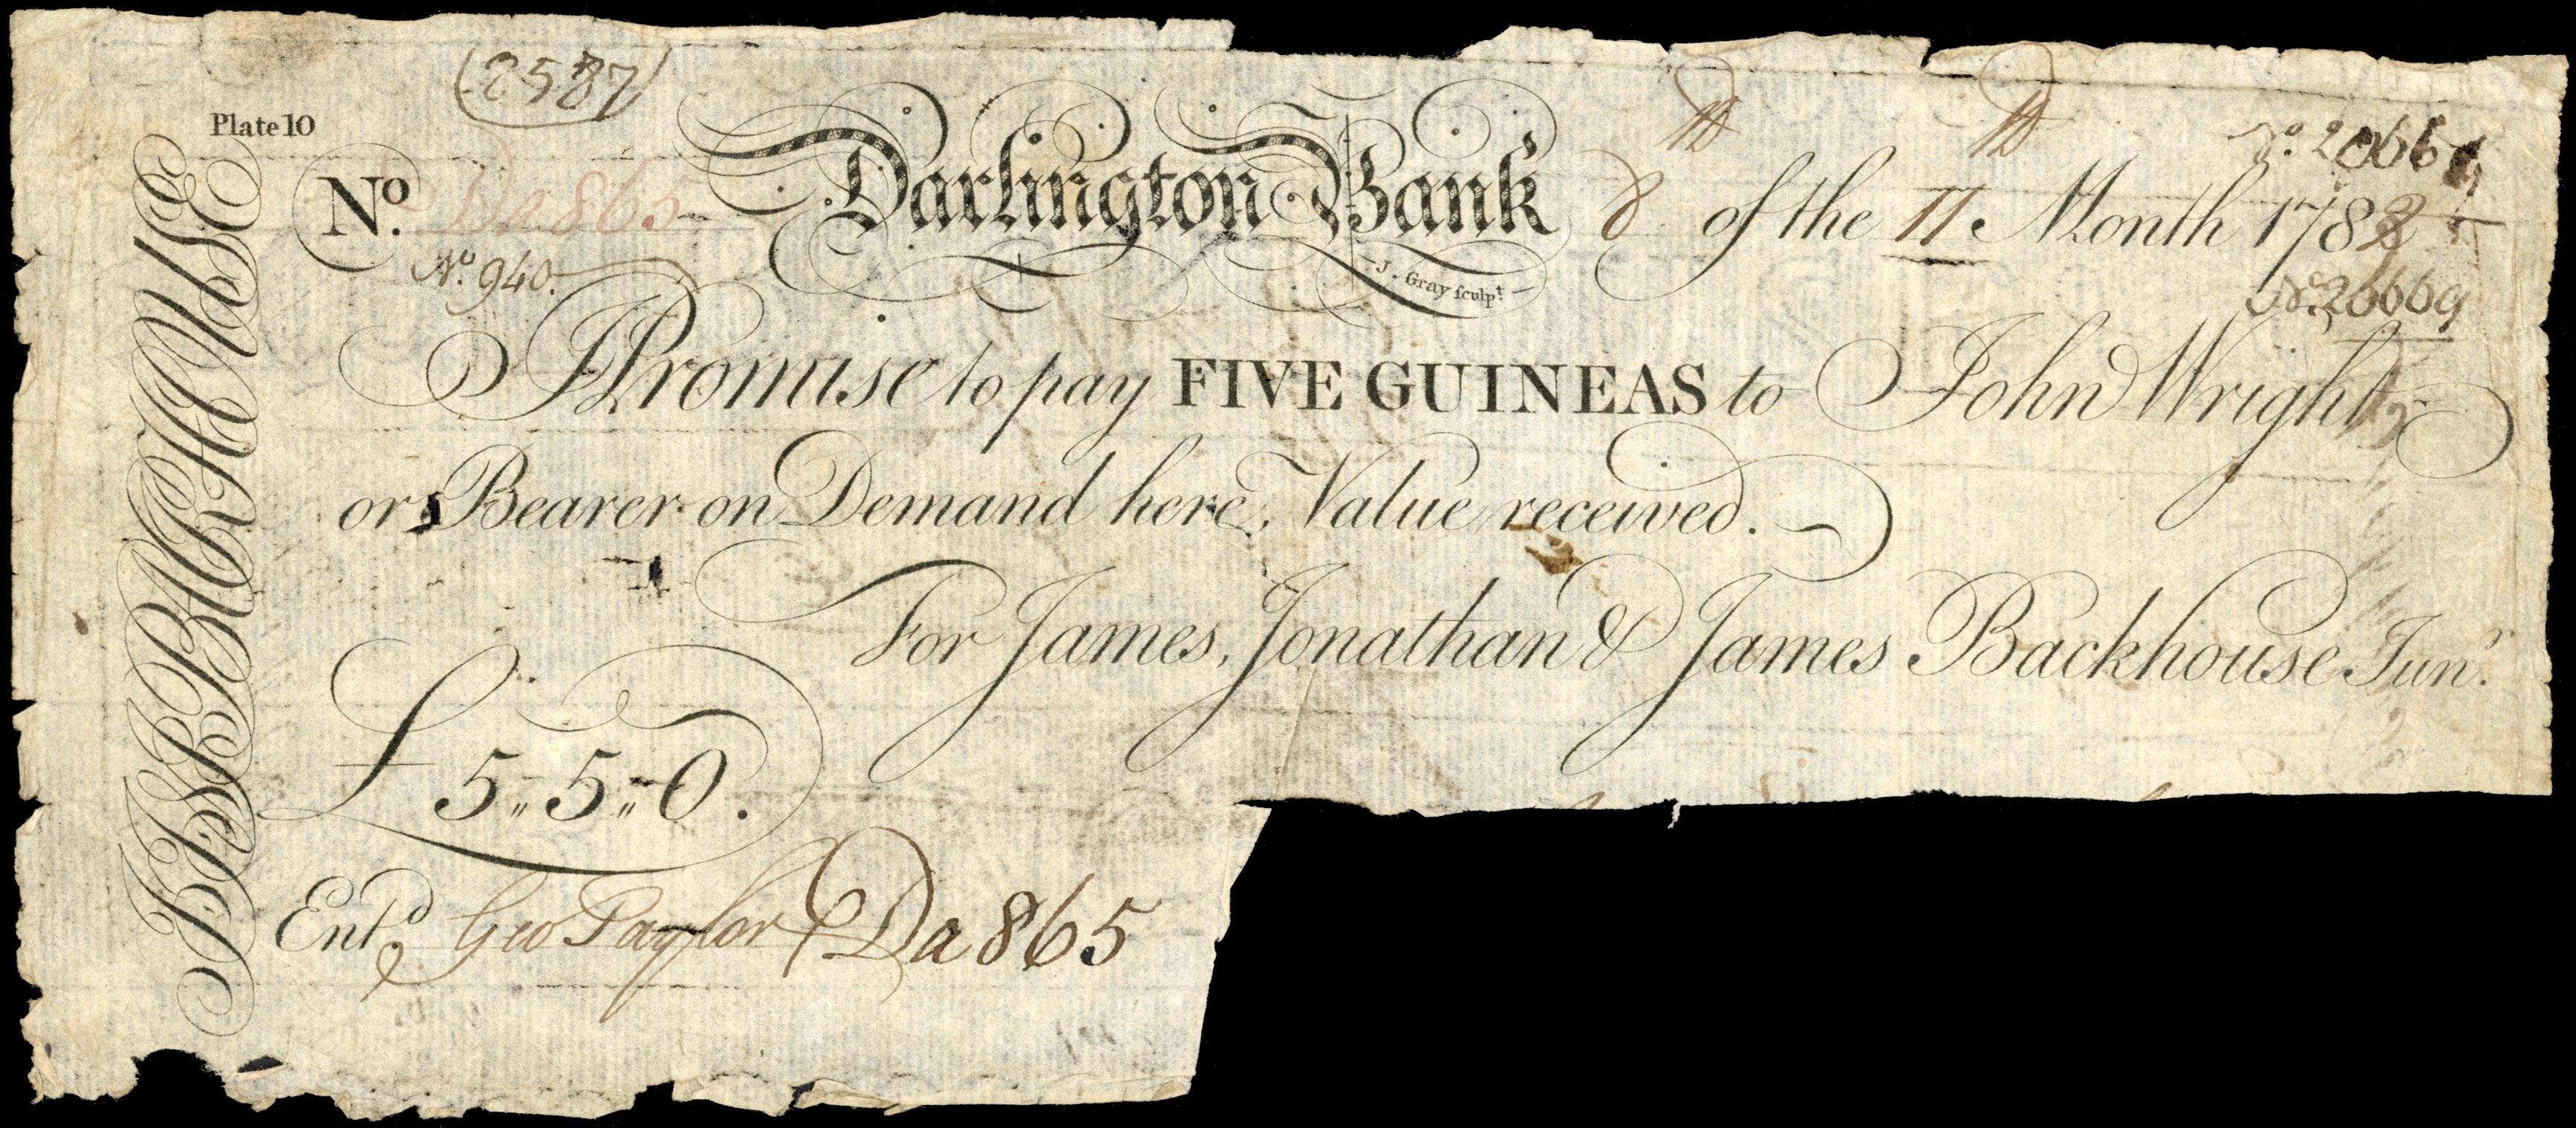 (2587)
Plate 10
No. Da865 Darlington Bank 8 of the 11 Month 178
No. 940.
J. Gray sculpt.
I Promise to pay FIVE GUINEAS to John Wright
or Bearer on Demand here, Value received.
For James, Jonathan & James Backhouse Junr.
£ 5 " 5 " 0.
Entd. Geo Taylor Da 865